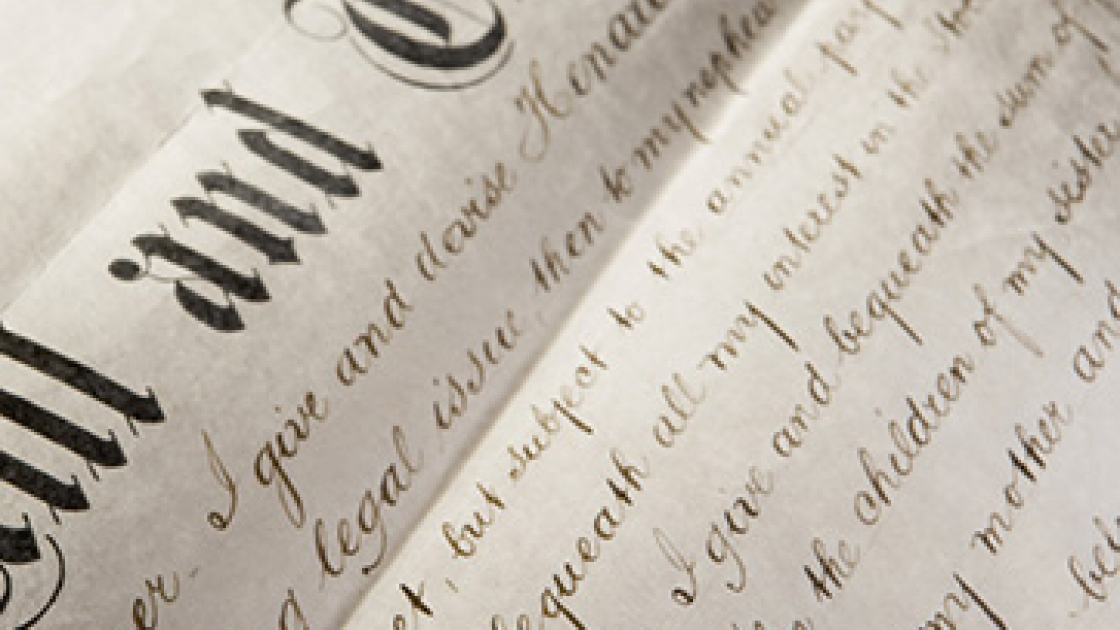 ill and
I give and devise
er. legal issue, then to my nephew
but subject to the annual pay
bequeath all my interest in the
I give and bequeath the sum of
the children of my sister
my mother and